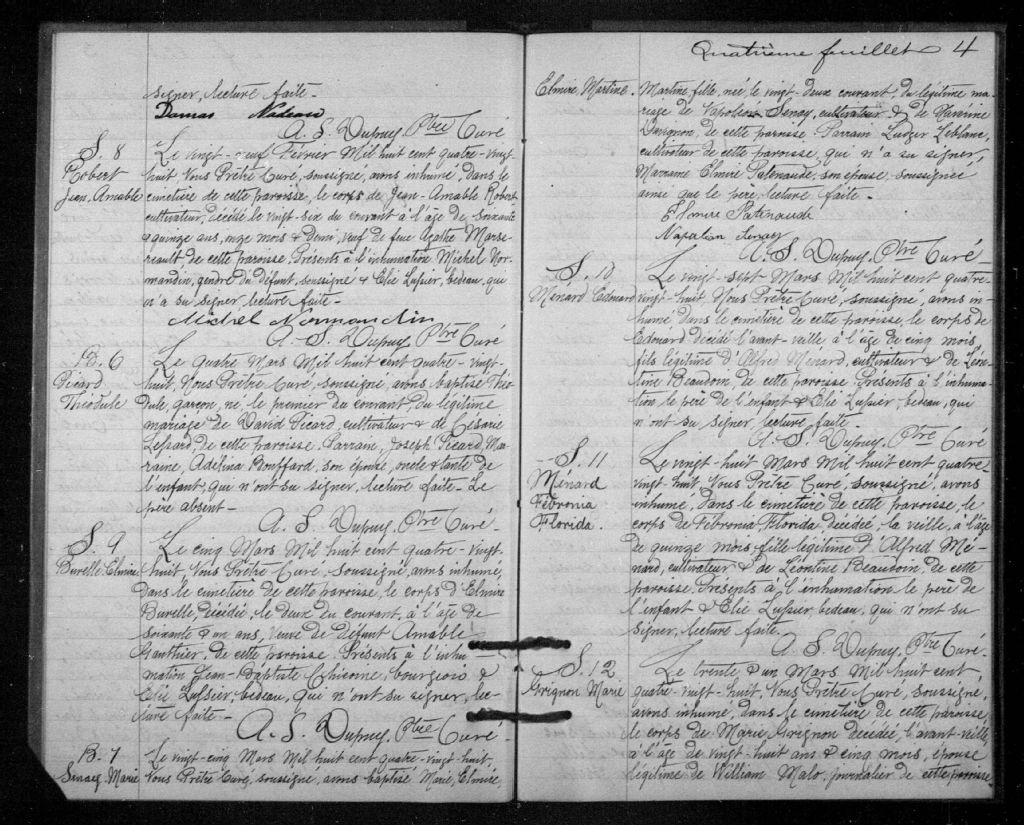 signer, lecture faite-
Damas Nadeau
A. S. Dupuy, Ptre Curé
S. 8
Robert
Jean, Amable
Le vingt-neuf Février Mil huit cent quatre-vingt-
huit Nous Prêtre Curé, soussigné, avons inhumé, dans le
cimetière de cette paroisse, le corps de Jean-Amable Robert
cultivateur, décédé le vingt-six du courant à l'âge de soixante
& quinze ans, onze mois & demi, veuf de feue Agathe Marse-
reault de cette paroisse. Présents à l'inhumation Michel Nor-
mandin, gendre du défunt, soussigné & Elie Lussier, bedeau, qui
n'a su signer lecture faite-
Michel Normandin
A. S. Dupuy, Ptre Curé
B. 6
Picard
Théodule
Le quatre Mars Mil huit cent quatre-vingt-
huit, Nous Prêtre Curé, soussigné, avons baptisé Théo-
dule, garçon, né le premier du courant, du légitime
mariage de David Picard, cultivateur & de Césarie
Lessard, de cette paroisse. Parrain, Joseph Picard, Mar-
raine, Adélina Bouffard, son épouse, oncle & tante de
l'enfant, qui n'ont su signer, lecture faite- Le
père absent-
A. S. Dupuy, Ptre Curé-
S. 9
Burelle Elmire
Le cinq Mars Mil huit cent quatre-vingt-
huit, Nous Prêtre Curé, soussigné, avons inhumé,
dans le cimetière de cette paroisse, le corps d'Elmire
Burelle, décédée, le deux du courant, à l'âge de
soixante & un ans, veuve de défunt Amable
Gauthier, de cette paroisse. Présents à l'inhu-
mation Jean-Baptiste Chicoine, bourgeois &
Elie Lussier, bedeau, qui n'ont su signer, lec-
ture faite-
A. S. Dupuy Ptre Curé-
B. 7
Senay, Marie
Le vingt-cinq Mars Mil huit cent quatre-vingt-huit,
Nous Prêtre Curé, soussigné, avons baptisé Marie, Elmire,
Quatrième feuillet 4
Elmire, Martine.
Martine, fille, née, le vingt-deux courant, du légitime ma-
riage de Napoléon Senay, cultivateur & de
Davignon, de cette paroisse Parrain Ludger Leblanc,
cultivateur de cette paroisse, qui n'a su signer,
Marraine Elmire Patenaude, son épouse, soussignée
ainsi que le père, lecture faite-
Elmire Patenaude
Napoléon Senay
A. S. Dupuy Ptre Curé-
S. 10
Ménard Edouard
Le vingt-sept Mars Mil huit cent quatre-
vingt-huit, Nous Prêtre Curé, soussigné, avons in-
humé, dans le cimetière de cette paroisse, le corps de
Edouard décédé l'avant-veille à l'âge de cinq mois,
fils légitime d'Alfred Ménard, cultivateur & de Léon-
tine Beaudoin, de cette paroisse. Présents à l'inhuma-
tion, le père de l'enfant & Elie Lussier, bedeau, qui
n'ont su signer, lecture faite-
A. S. Dupuy, Ptre Curé
S. 11
Ménard
Fébronia
Florida.
Le vingt-huit Mars Mil huit cent quatre-
vingt-huit, Nous Prêtre Curé, soussigné, avons
inhumé, dans le cimetière de cette paroisse, le
corps de Fébronia Florida décédée, la veille, à l'âge
de quinze mois, fille légitime d'Alfred Mé-
nard, cultivateur & de Léontine Beaudoin, de cette
paroisse. Présents à l'inhumation le père de
l'enfant & Elie Lussier bedeau, qui n'ont su
signer, lecture faite.
A. S. Dupuy, Ptre Curé-
S. 12
Grignon Marie
Le trente & un Mars Mil huit cent
quatre-vingt-huit, Nous Prêtre Curé, soussigné,
avons inhumé, dans le cimetière de cette paroisse,
le corps de Marie Grignon décédée l'avant-veille,
à l'âge de vingt-huit ans & cinq mois, épouse
légitime de William Malo, journalier de cette paroisse.